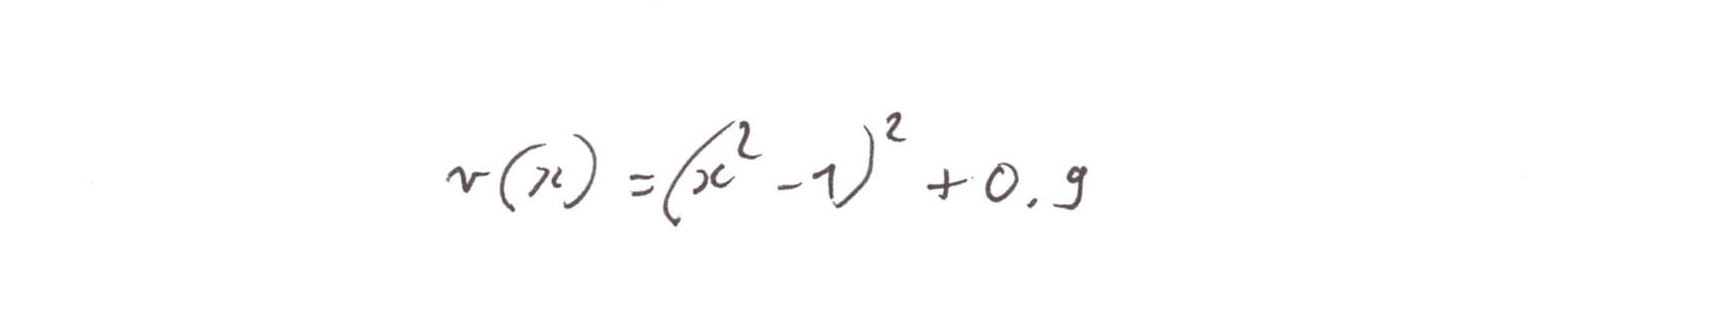 v(x) = (x² - 1)² + 0.9